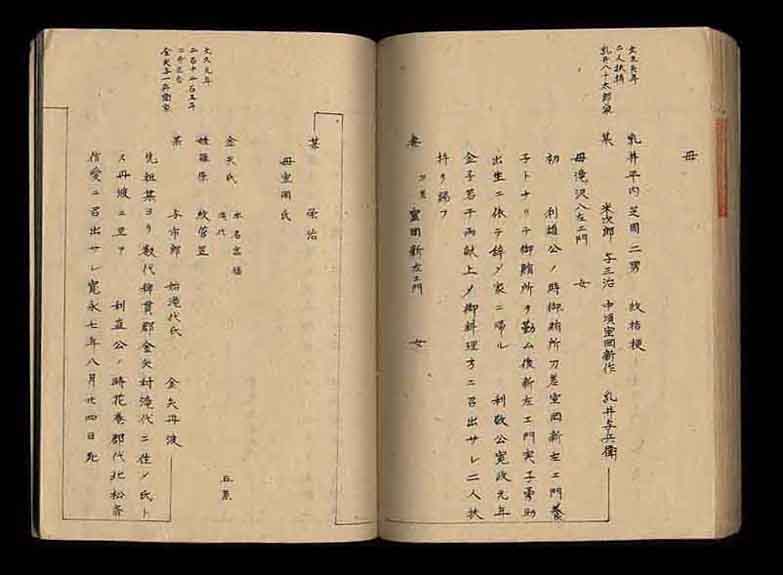 母
文久元年
二人扶持
乳井八十太郎家
乳井平内芝園二男 紋桔梗
某 米次郎 与三治 中項室岡新作 乳井与兵衛
母滝沢八左エ門 女
初 利雄公ノ時御賄所刀差室岡新左エ門養
子トナリテ御賄所ヲ勤ム後新左エ門実子勇助
出生ニ依テ辞メ家ニ帰ル 利敬公寛政元年
金子若干両献上メ御料理方ニ召出サレ二人扶
持ヲ賜フ
妻 刀差 室岡新左エ門 女
某 栄治
母室岡氏
文久元年
金矢与一兵衛家
金矢氏 本名高橋 滝代
姓藤原 紋菅笠
某 与市郎 始滝代氏 金矢丹波
先祖某ヨリ数代稗貫郡金矢村滝代ニ住メ氏ト
ス丹波ニ至テ 利直公ノ時花巻郡代北松斎
信愛ニ召出サレ寛永七年八月廿四日死